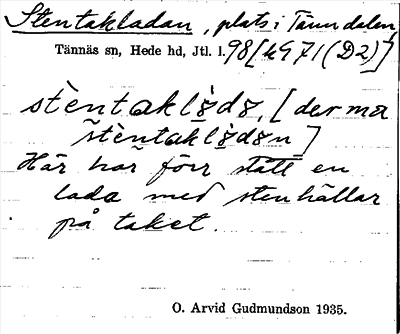 Stentakladan, plats i Tänndalen,
Tännäs sn, Hede hd, Jtl. l. 98 [49 71 (D2)]
stèntaklǝ̀dǝ, [där mǝ
stèntaklǝ̀dǝn]
Här har förr stått en
lada med stenhällar
på taket.
O. Arvid Gudmundson 1935.